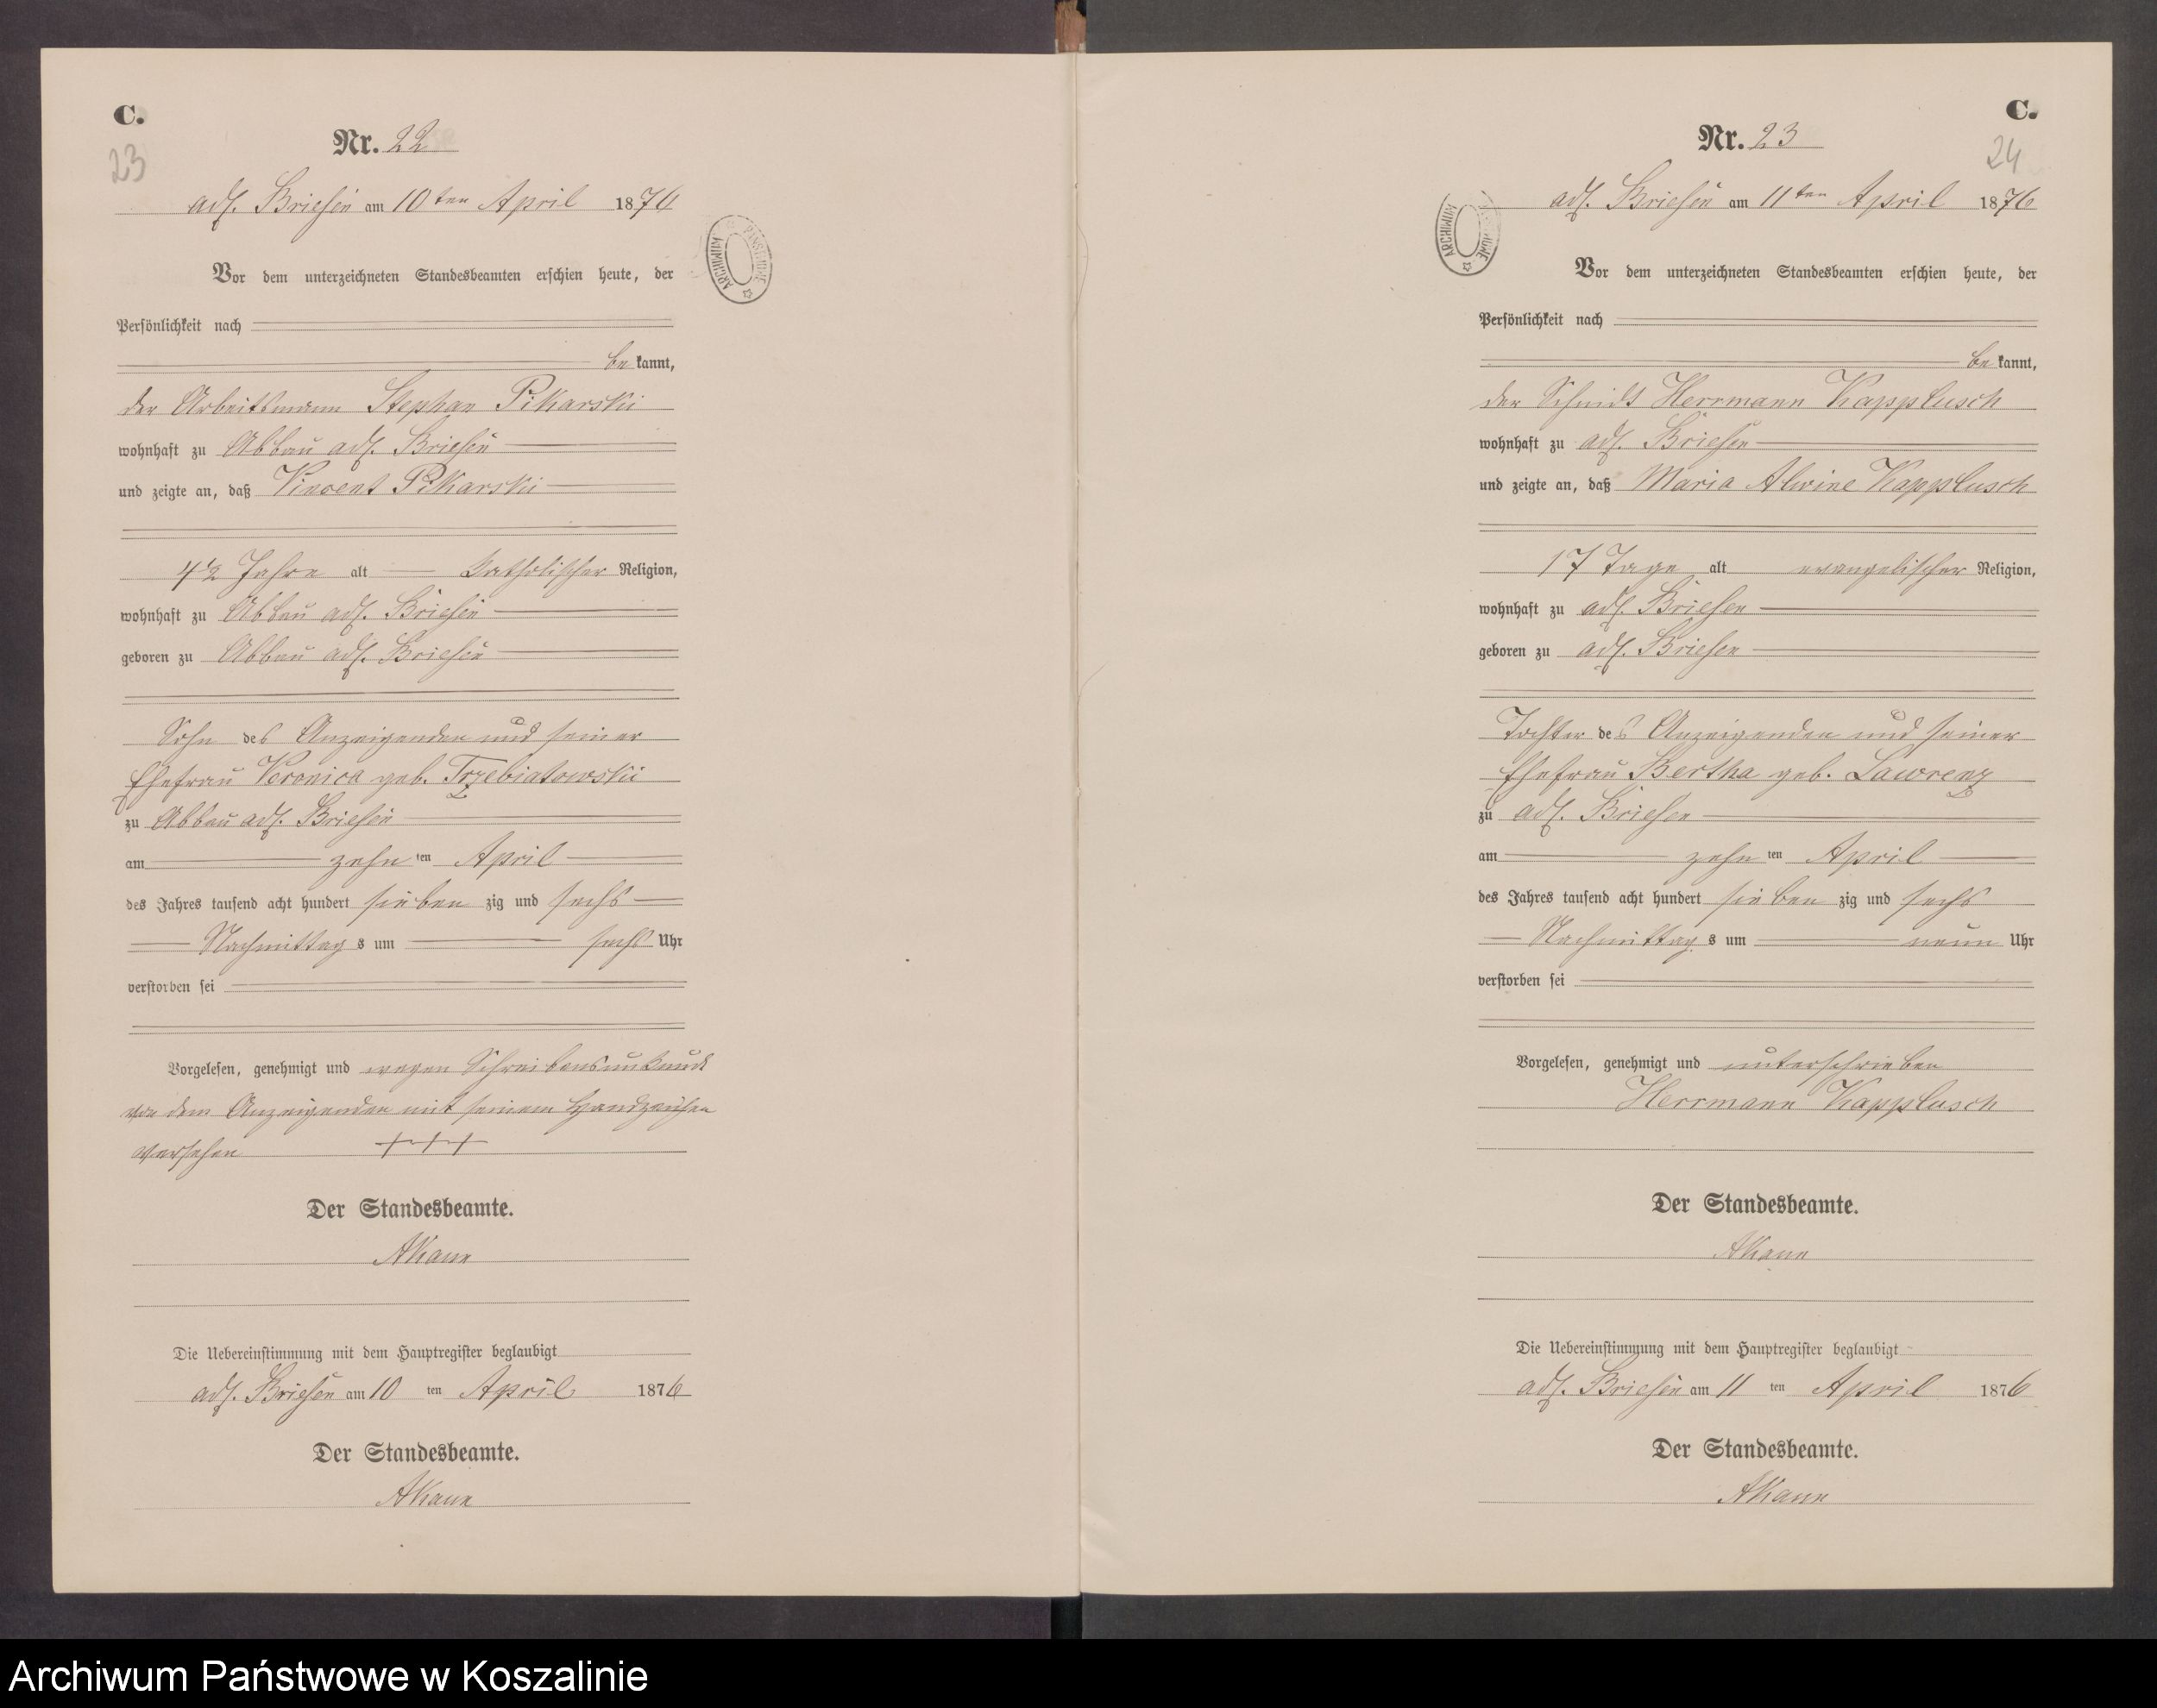 C.
23
Nr. 22
adl. Briesen am 10ten April 1876
ARCHIWUM PAŃSTWOWE
Vor dem unterzeichneten Standesbeamten erschien heute, der
Persönlichkeit nach
be kannt,
der Arbeitsmann Stephan Pikarski
wohnhaft zu Abbau adl. Briesen
und zeigte an, daß Vincent Pikarski
4½ Jahre alt katholischer Religion,
wohnhaft zu Abbau adl. Briesen
geboren zu Abbau adl. Briesen
Sohn des Anzeigenden und seiner
Ehefrau Veronica geb. Trzebiatowski
zu Abbau adl. Briesen
am zehn ten April
des Jahres tausend acht hundert sieben zig und sechs
Nachmittag s um sechs Uhr
verstorben sei
Vorgelesen, genehmigt und wegen Schreibensunkunde
von dem Anzeigenden mit seinem Handzeichen
versehen +++
Der Standesbeamte.
AKann
Die Uebereinstimmung mit dem Hauptregister beglaubigt
adl. Briesen am 10 ten April 1876
Der Standesbeamte.
AKann
C.
24
Nr. 23
adl. Briesen am 11ten April 1876
ARCHIWUM PAŃSTWOWE
Vor dem unterzeichneten Standesbeamten erschien heute, der
Persönlichkeit nach
be kannt,
der Schmidt Herrmann Kapplusch
wohnhaft zu adl. Briesen
und zeigte an, daß Maria Alwine Kapplusch
17 Tage alt evangelischer Religion,
wohnhaft zu adl. Briesen
geboren zu adl. Briesen
Tochter des Anzeigenden und seiner
Ehefrau Bertha geb. Lawrenz
zu adl. Briesen
am zehn ten April
des Jahres tausend acht hundert sieben zig und sechs
Nachmittag s um neun Uhr
verstorben sei
Vorgelesen, genehmigt und unterschrieben
Herrmann Kapplusch
Der Standesbeamte.
AKann
Die Uebereinstimmung mit dem Hauptregister beglaubigt
adl. Briesen am 11 ten April 1876
Der Standesbeamte.
AKann
Archiwum Państwowe w Koszalinie